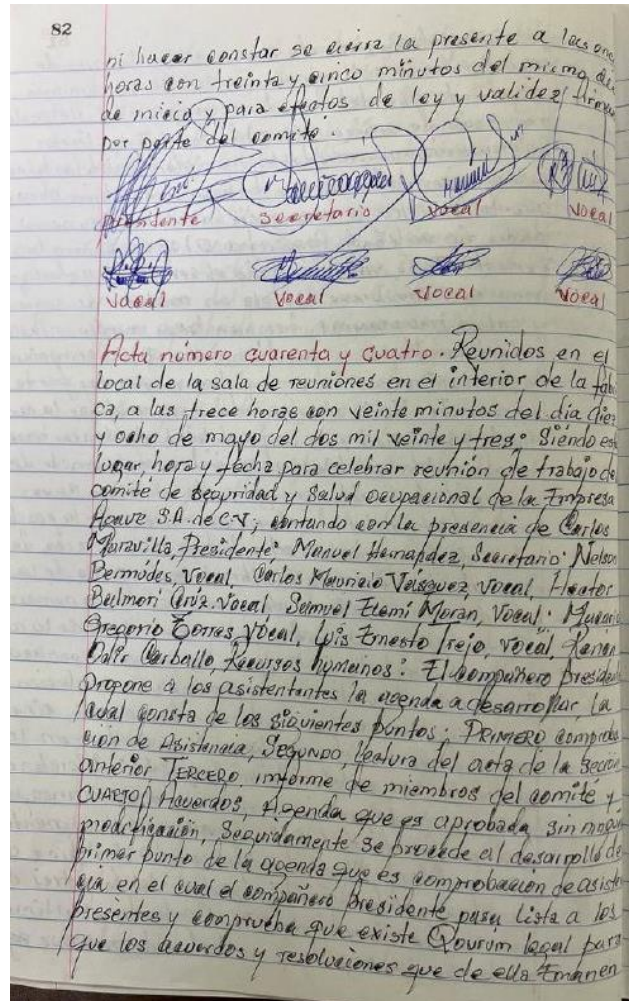 82
ni hacer constar se cierra la presente a las once
horas con treinta y cinco minutos del mismo dia
de inicio y para efectos de ley y validez firman
por parte del comité.
Presidente Secretario Vocal Vocal
Vocal Vocal Vocal Vocal
Acta número cuarenta y cuatro. Reunidos en el
local de la sala de reuniones en el interior de la fabri
ca, a las trece horas con veinte minutos del día diez
y ocho de mayo del dos mil veinte y tres. Siendo este
lugar, hora y fecha para celebrar reunión de trabajo de
comité de seguridad y Salud ocupacional de la Empresa
S.A. de C.V; contando con la presencia de Carlos
Maravilla, Presidente. Manuel Hernandez, Secretario. Nelson
Bermúdes, Vocal, Carlos Mauricio Vásquez, Vocal, Hector
Belmori Cruz. Vocal, Samuel Elemí Moran, Vocal.
Gregorio Torres, Vocal, Luis Ernesto Trejo, vocal,
Carballo, Recursos humanos: El compañero president
propone a los asistentantes la agenda a desarrollar, la
cual consta de los siguientes puntos: PRIMERO comproba
ción de Asistencia, SEGUNDO, Lectura del acta de la
anterior TERCERO informe de miembros del comité y
CUARTO Acuerdos, Agenda que es aprobada sin
modificación, Seguidamente se procede al desarrollo de
primer punto de la agenda que es comprobacion de asiste
cia en el cual el compañero Presidente pasa Lista a los
presentes y comprueba que existe Qourum legal para
que los acuerdos y resoluciones que de ella Emanen